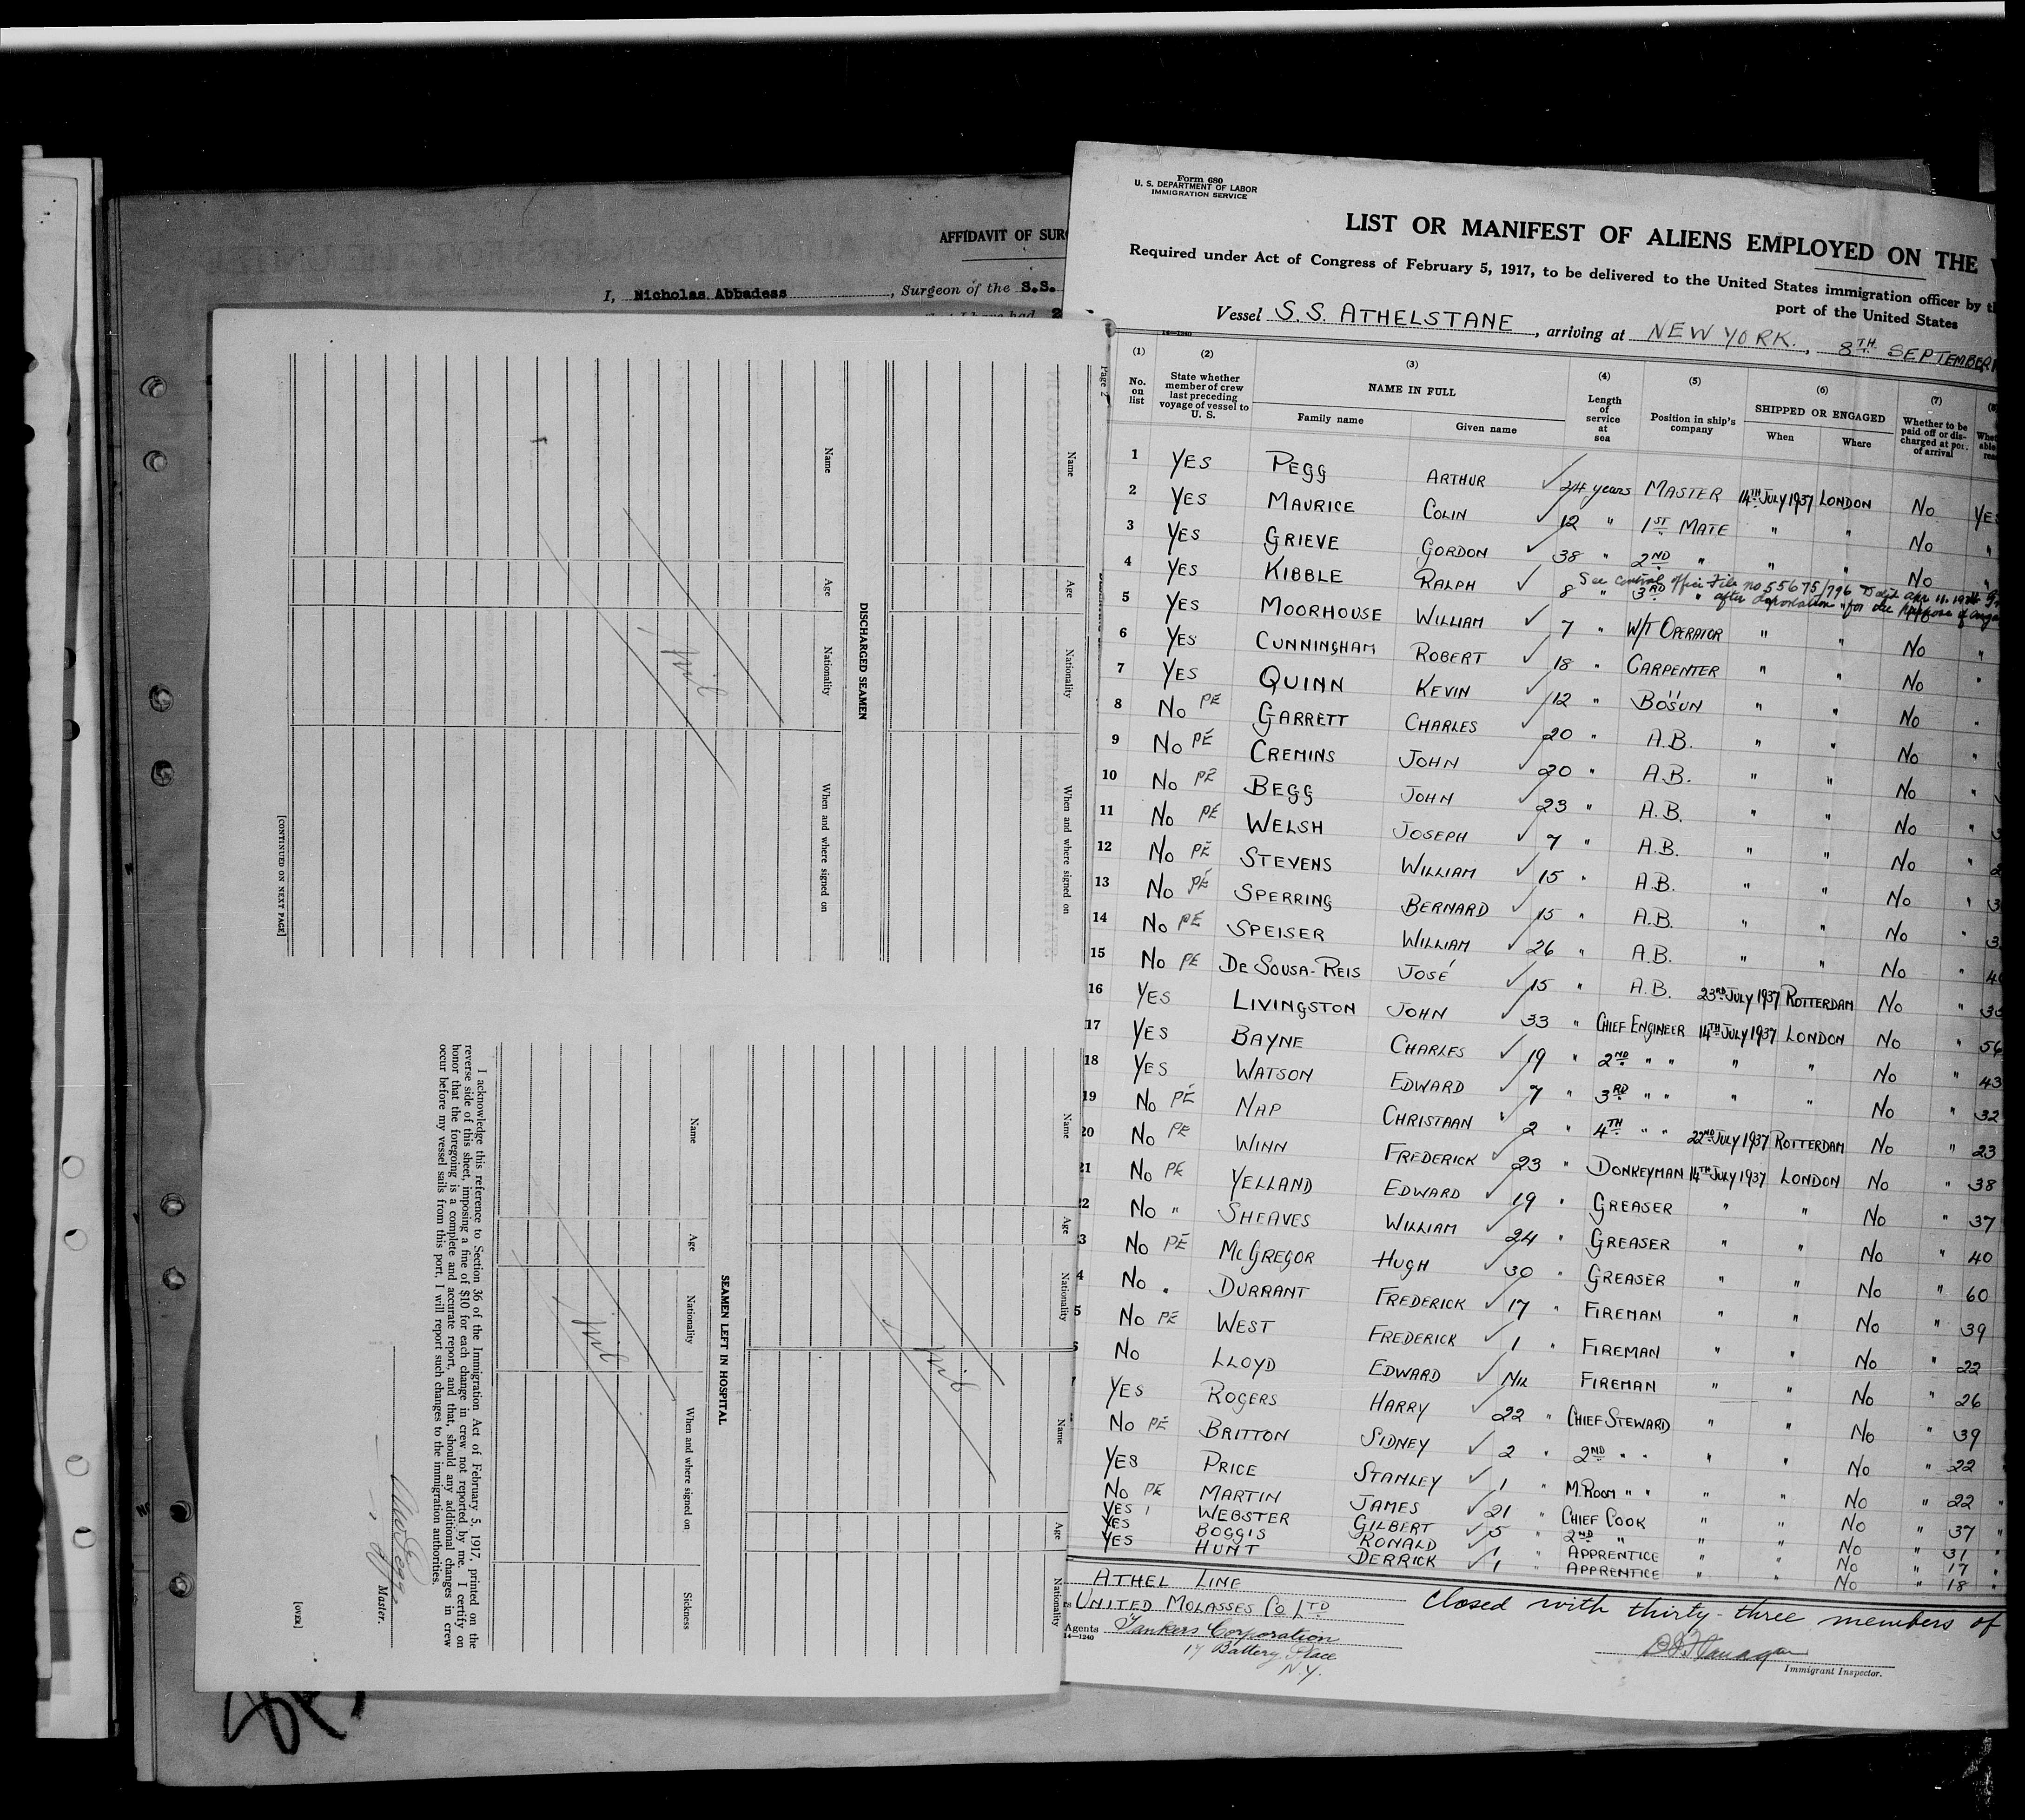 AFFIDAVIT OF SUR
I, Nicholas Abbadess, Surgeon of the S.S.
Page 2
Name Age Nationality When and where signed on
DISCHARGED SEAMEN
Name Age Nationality When and where signed on
nil
[CONTINUED ON NEXT PAGE]
Name Age Nationality Name Age Nationality
nil
SEAMEN LEFT IN HOSPITAL
Name Age Nationality When and where signed on Sickness
nil
I acknowledge this reference to Section 36 of the Immigration Act of February 5, 1917, printed on the
reverse side of this sheet, imposing a fine of $10 for each change in crew not reported by me. I certify on
honor that the foregoing is a complete and accurate report, and that, should any additional changes in crew
occur before my vessel sails from this port, I will report such changes to the immigration authorities.
Master.
[OVER]
Form 680
U. S. DEPARTMENT OF LABOR
IMMIGRATION SERVICE
LIST OR MANIFEST OF ALIENS EMPLOYED ON THE
Required under Act of Congress of February 5, 1917, to be delivered to the United States immigration officer by
port of the United States
Vessel S.S. ATHELSTANE, arriving at NEW YORK., 8TH SEPTEMBER
14—1240
(1) (2) (3) (4) (5) (6) (7)
No. on list State whether member of crew last preceding voyage of vessel to U. S. NAME IN FULL Family name Given name Length of service at sea Position in ship's company SHIPPED OR ENGAGED When Where Whether to be paid off or discharged at port of arrival
1 YES PEGG ARTHUR 24 years MASTER 14TH JULY 1937 LONDON No YES
2 YES MAURICE COLIN 12 " 1ST MATE " " No "
3 YES GRIEVE GORDON 38 " 2ND " " " No "
See central office file no 55675/796
4 YES KIBBLE RALPH 8 " 3RD " after deportation for the purpose of
5 YES MOORHOUSE WILLIAM 7 " W/T OPERATOR " " No "
6 YES CUNNINGHAM ROBERT 18 " CARPENTER " " No "
7 YES QUINN KEVIN 12 " BOSUN " " No "
8 No PE GARRETT CHARLES 20 " A.B. " " No "
9 No PE CREMINS JOHN 20 " A.B. " " No "
10 No PE BEGG JOHN 23 " A.B. " " No "
11 No PE WELSH JOSEPH 7 " A.B. " " No "
12 No PE STEVENS WILLIAM 15 " A.B. " " No "
13 No PE SPERRING BERNARD 15 " A.B. " " No "
14 No PE SPEISER WILLIAM 26 " A.B. " " No "
15 No PE DE SOUSA-REIS JOSÉ 15 " A.B. 23RD JULY 1937 ROTTERDAM No "
16 YES LIVINGSTON JOHN 33 " CHIEF ENGINEER 14TH JULY 1937 LONDON No " 56
17 YES BAYNE CHARLES 19 " 2ND " " " " No " 43
18 YES WATSON EDWARD 7 " 3RD " " " " No " 32
19 No PE NAP CHRISTAAN 2 " 4TH " " 22ND JULY 1937 ROTTERDAM No " 23
20 No PE WINN FREDERICK 23 " DONKEYMAN 14TH JULY 1937 LONDON No " 38
21 No PE YELLAND EDWARD 19 " GREASER " " No " 37
2 No " SHEAVES WILLIAM 24 " GREASER " " No " 40
3 No PE MCGREGOR HUGH 30 " GREASER " " No " 60
4 No " DURRANT FREDERICK 17 " FIREMAN " " No " 39
5 No PE WEST FREDERICK 1 " FIREMAN " " No " 22
No LLOYD EDWARD NIL FIREMAN " " No " 26
YES ROGERS HARRY 22 " CHIEF STEWARD " " No " 39
No PE BRITTON SIDNEY 2 " 2ND " " " " No " 22
YES PRICE STANLEY 1 " M. ROOM " " " " No " 22 "
No PE MARTIN JAMES 21 " CHIEF COOK " " No " 37 "
YES WEBSTER GILBERT 5 " 2ND " " " No " 31 "
YES BOGGIS RONALD 1 " APPRENTICE " " No " 17 "
YES HUNT DERRICK 1 " APPRENTICE " " No " 18 "
ATHEL LINE
UNITED MOLASSES CO LTD
Agents Tankers Corporation
14—1240
17 Battery Place
N.Y.
Closed with thirty-three members of
Immigrant Inspector.